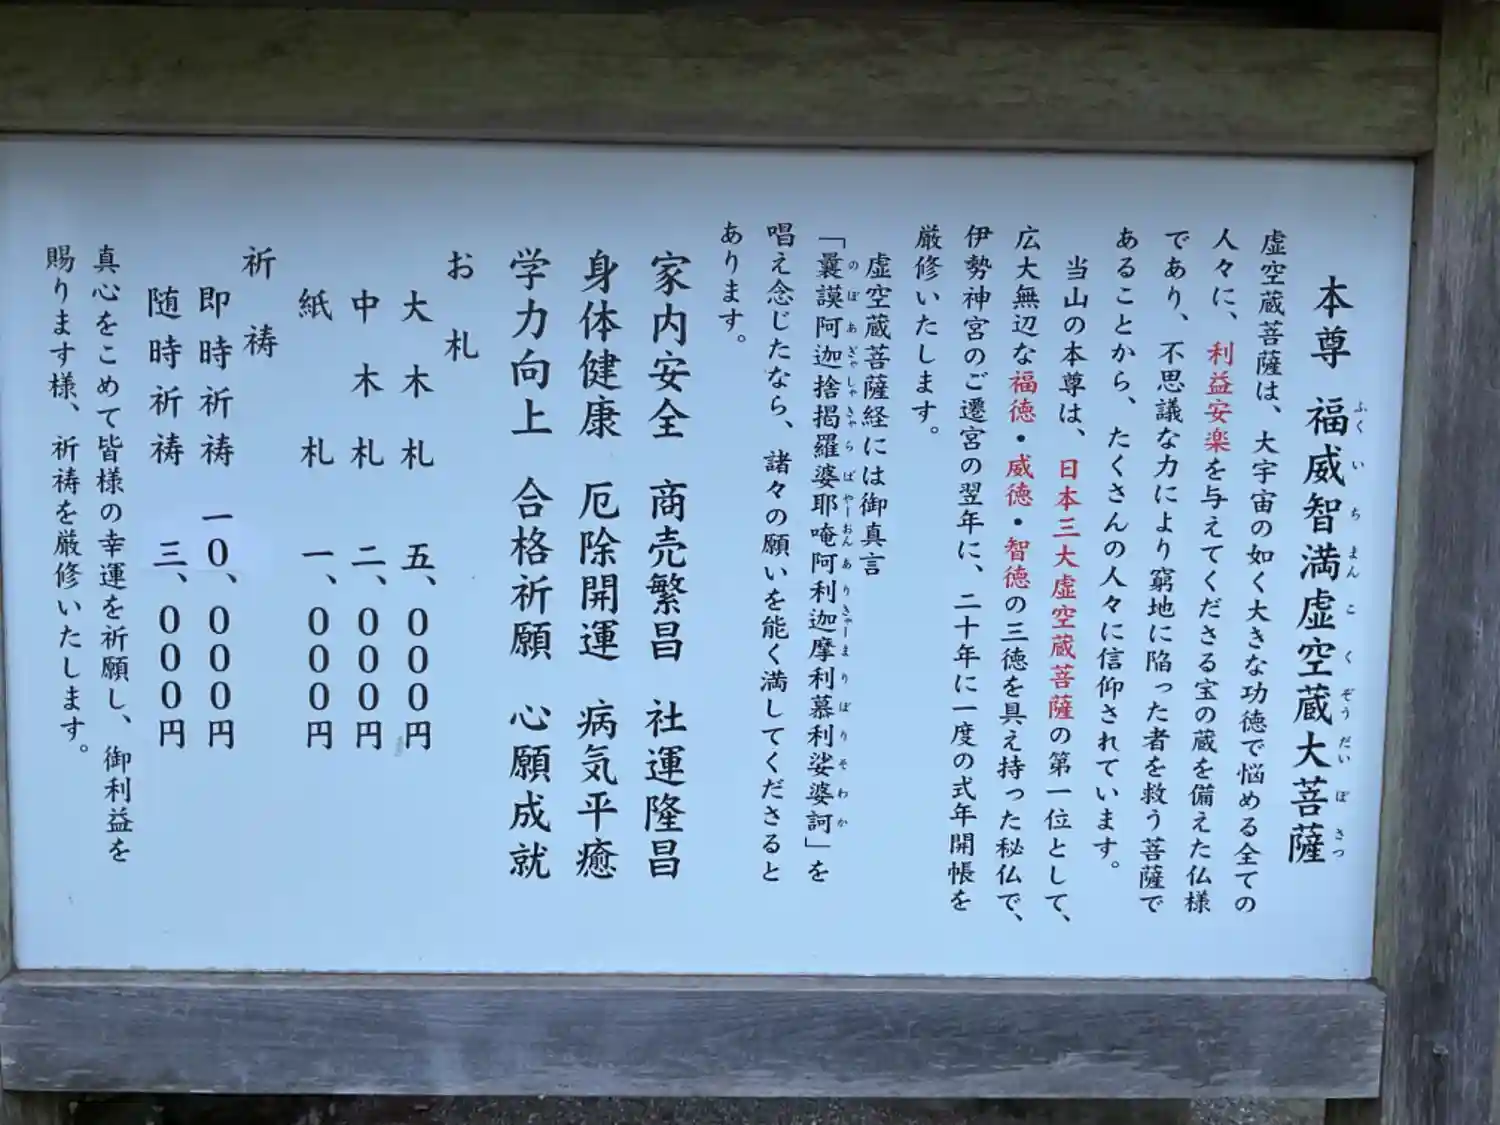 本尊 福威智満虚空蔵大菩薩
ふく い ち まん こ く ぞう だい ぼ さつ
虚空蔵菩薩は、大宇宙の如く大きな功徳で悩める全ての
人々に、利益安楽を与えてくださる宝の蔵を備えた仏様
であり、不思議な力により窮地に陥った者を救う菩薩で
あることから、たくさんの人々に信仰されています。
当山の本尊は、日本三大虚空蔵菩薩の第一位として、
広大無辺な福徳・威徳・智徳の三徳を具え持った秘仏で、
伊勢神宮のご遷宮の翌年に、二十年に一度の式年開帳を
厳修いたします。
虚空蔵菩薩経には御真言
「曩謨阿迦捨掲羅婆耶唵阿利迦摩利慕利娑婆訶」を
のぼあぎゃしゃきゃらばやーおんありきゃーまりぼりそわか
唱え念じたなら、諸々の願いを能く満してくださると
あります。
家内安全 商売繁昌 社運隆昌
身体健康 厄除開運 病気平癒
学力向上 合格祈願 心願成就
お札
大木札 五、000円
中木札 二、000円
紙札 一、000円
祈祷
即時祈祷 一0、000円
随時祈祷 三、000円
真心をこめて皆様の幸運を祈願し、御利益を
賜ります様、祈祷を厳修いたします。